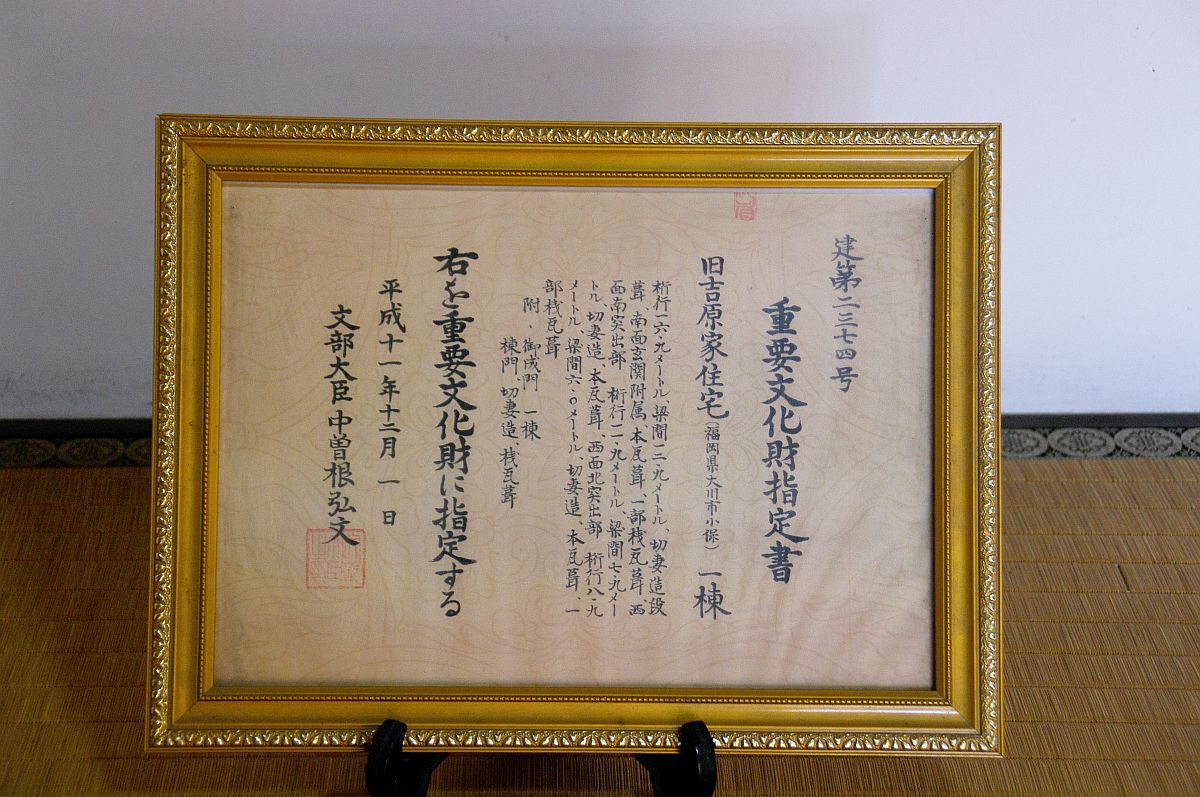 建第二三七四号
重要文化財指定書
旧吉原家住宅(福岡県大川市小保) 一棟
桁行一六・九メートル、梁間一二・九メートル、切妻造段
葺、南面玄関附属、本瓦葺、一部桟瓦葺、西
面南突出部 桁行一二・九メートル、梁間七・九メー
トル、切妻造、本瓦葺、西面北突出部 桁行八・九
メートル、梁間六・〇メートル、切妻造、本瓦葺、一
部桟瓦葺
附・御成門 一棟
棟門、切妻造、桟瓦葺
右を重要文化財に指定する
平成十一年十二月一日
文部大臣 中曽根弘文